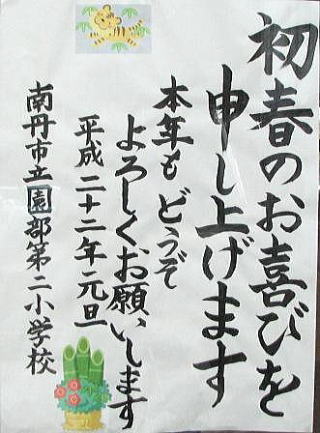 初春のお喜びを
申し上げます
本年もどうぞ
よろしくお願いします
平成二十二年元旦
南丹市立園部第二小学校